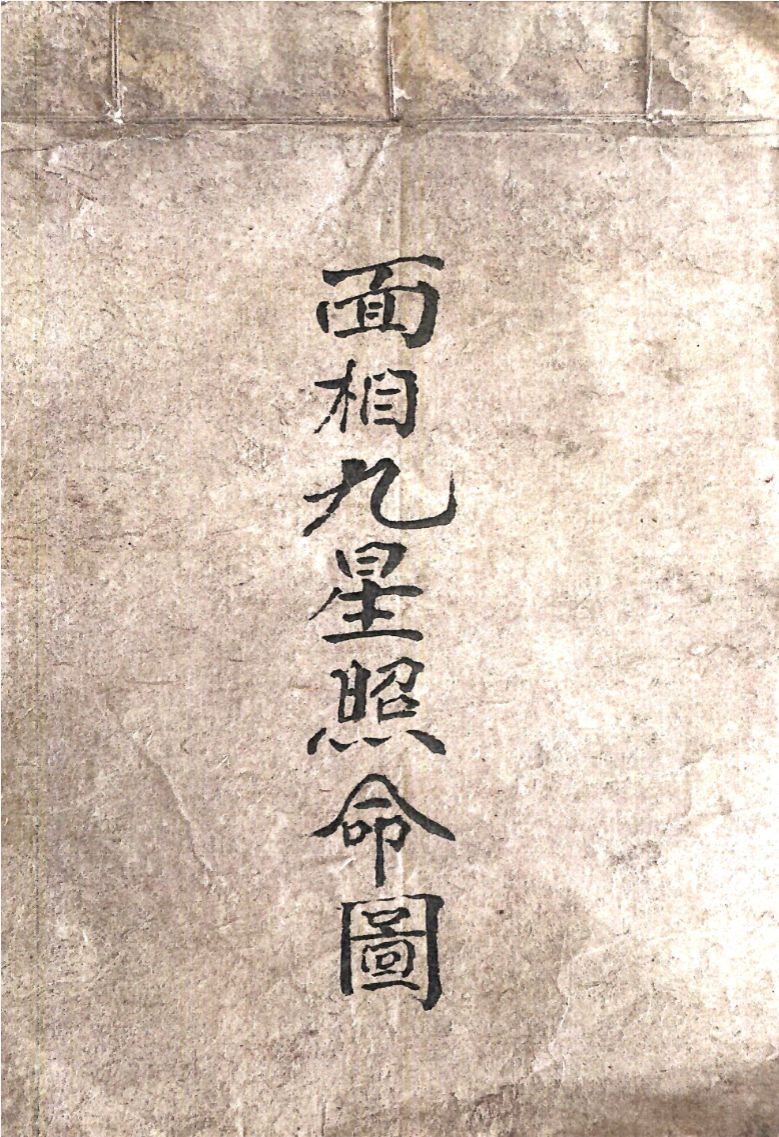 面相九星照命圖